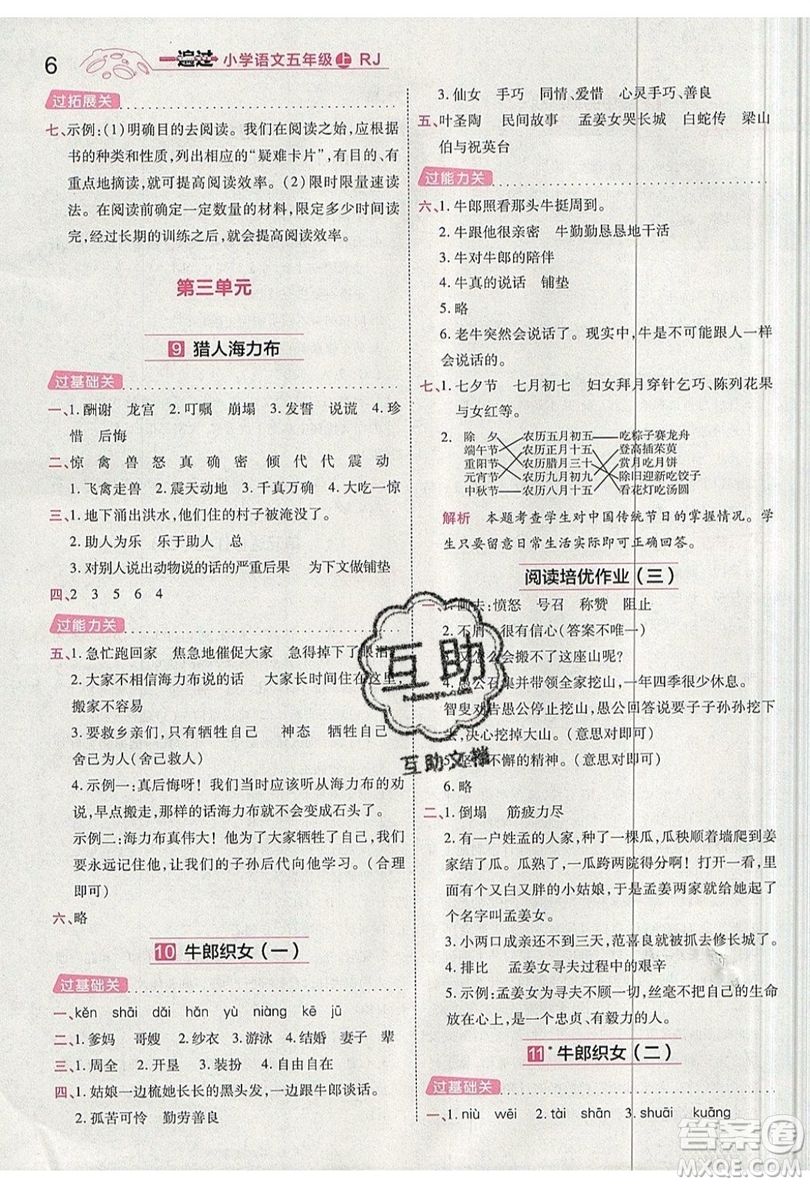 6
一遍过 小学语文五年级 上 RJ
过拓展关
七、示例:(1)明确目的去阅读。我们在阅读之前,应根据
书的种类和性质,列出相应的“疑难卡片”,有目的、有
重点地摘读,就可以提高阅读效率。(2)限时限量速读
法。在阅读前确定一定数量的材料,限定时间去读
完,经过长期的训练之后,便会提高阅读效率。
第三单元
9 猎人海力布
过基础关
一、1.酬谢 龙宫 2.叮嘱 崩塌 3.发誓 说谎 4.珍
惜 后悔
二、惊 禽 兽 怒 真 确 密 倾 代 代 震 动
1.飞禽走兽 2.震天动地 3.千真万确 4.大吃一惊
三、1.地下涌出洪水,他们的村子被淹没了。
2.助人为乐 乐于助人 总
3.对别人说出动物说的话的严重后果 为下文做铺垫
四、2 3 5 6 4
过能力关
五、1.急忙跑回家 焦急地催促大家 急得掉下了眼泪
2.大家不相信海力布说的话 大家住在这里,
搬家不容易
3.要救乡亲们,只有牺牲自己 神态 牺牲自己
舍己为人(舍己救人)
4.示例一:真后悔呀!当时我们应该听从海力布的劝
说,早点搬走,那样的话海力布就不会变成石头了。
示例二:海力布真伟大!他为了大家牺牲了自己,我们
要永远记住他,让我们的子子孙孙后代向他学习。(合理
即可)
六、略
10 牛郎织女(一)
过基础关
一、kěn shāi dāi hān yù niàng kē jū
二、1.爹妈 哥嫂 2.纱衣 3.游泳 4.结婚 妻子 辈
三、1.周全 2.开垦 3.装扮 4.打扮
四、1.姑娘一边梳她的黑头发,一边跟牛郎谈话。
2.孤苦可怜 勤劳善良
3.仙女 手巧 同情、爱惜 心灵手巧、善良
五、叶圣陶 民间故事 孟姜女哭长城 白蛇传 梁山
伯与祝英台
过能力关
六、1.牛郎照看那头牛挺周到。
2.牛跟他很亲密 牛勤勤恳恳地干活
3.牛对牛郎的陪伴
4.牛真的说话 铺垫
5.略
6.老牛突然会说话了。现实中,牛是不可能和人一样
会说话的。
七、1.七夕节 农历七月初七 妇女拜月穿针乞巧、陈列花果
与女红等。
2. 除 夕 农历五月初五 吃粽子赛龙舟
端午节 农历正月十五 登高插茱萸
重阳节 农历腊月三十 赏月吃月饼
元宵节 农历九月初九 除旧迎新吃饺子
中秋节 农历八月十五 看花灯吃汤圆
解析 本题考查学生对中国传统节日的掌握情况。学
生只要留意日常生活实际即可正确回答。
阅读培优作业(三)
一、1.画去:愤怒 号召 称赞 阻止
2.不屑 很有信心(答案不唯一)
会搬不了这座山?
愚公召集并带领大家挖山,一年四季很少休息。
智叟劝告愚公停止挖山,愚公回答要代代挖山,
决心挖掉大山。(意思对即可)
不懈的精神。(意思对即可)
6.略
二、1.倒塌 筋疲力尽
2.有一户姓孟的人家,种了一棵瓜,瓜秧顺着墙爬到姜
家结了瓜。瓜熟了,一瓜跨两院啊!打开一看,
里面有个又白又胖的小姑娘,于是孟姜两家就给她起了
个名字叫孟姜女。
3.小两口成亲还不到三天,范喜良就被抓去修长城了。
4.排比 孟姜女寻夫过程中的艰辛
5.示例:孟姜女寻夫历尽千辛万苦,她用自己的生命
反抗暴政,
11* 牛郎织女(二)
过基础关
一、1.niù wēi 2.tài shān 3.shuāi kuāng
互助
互助文档
答案圈
MXQE.COM